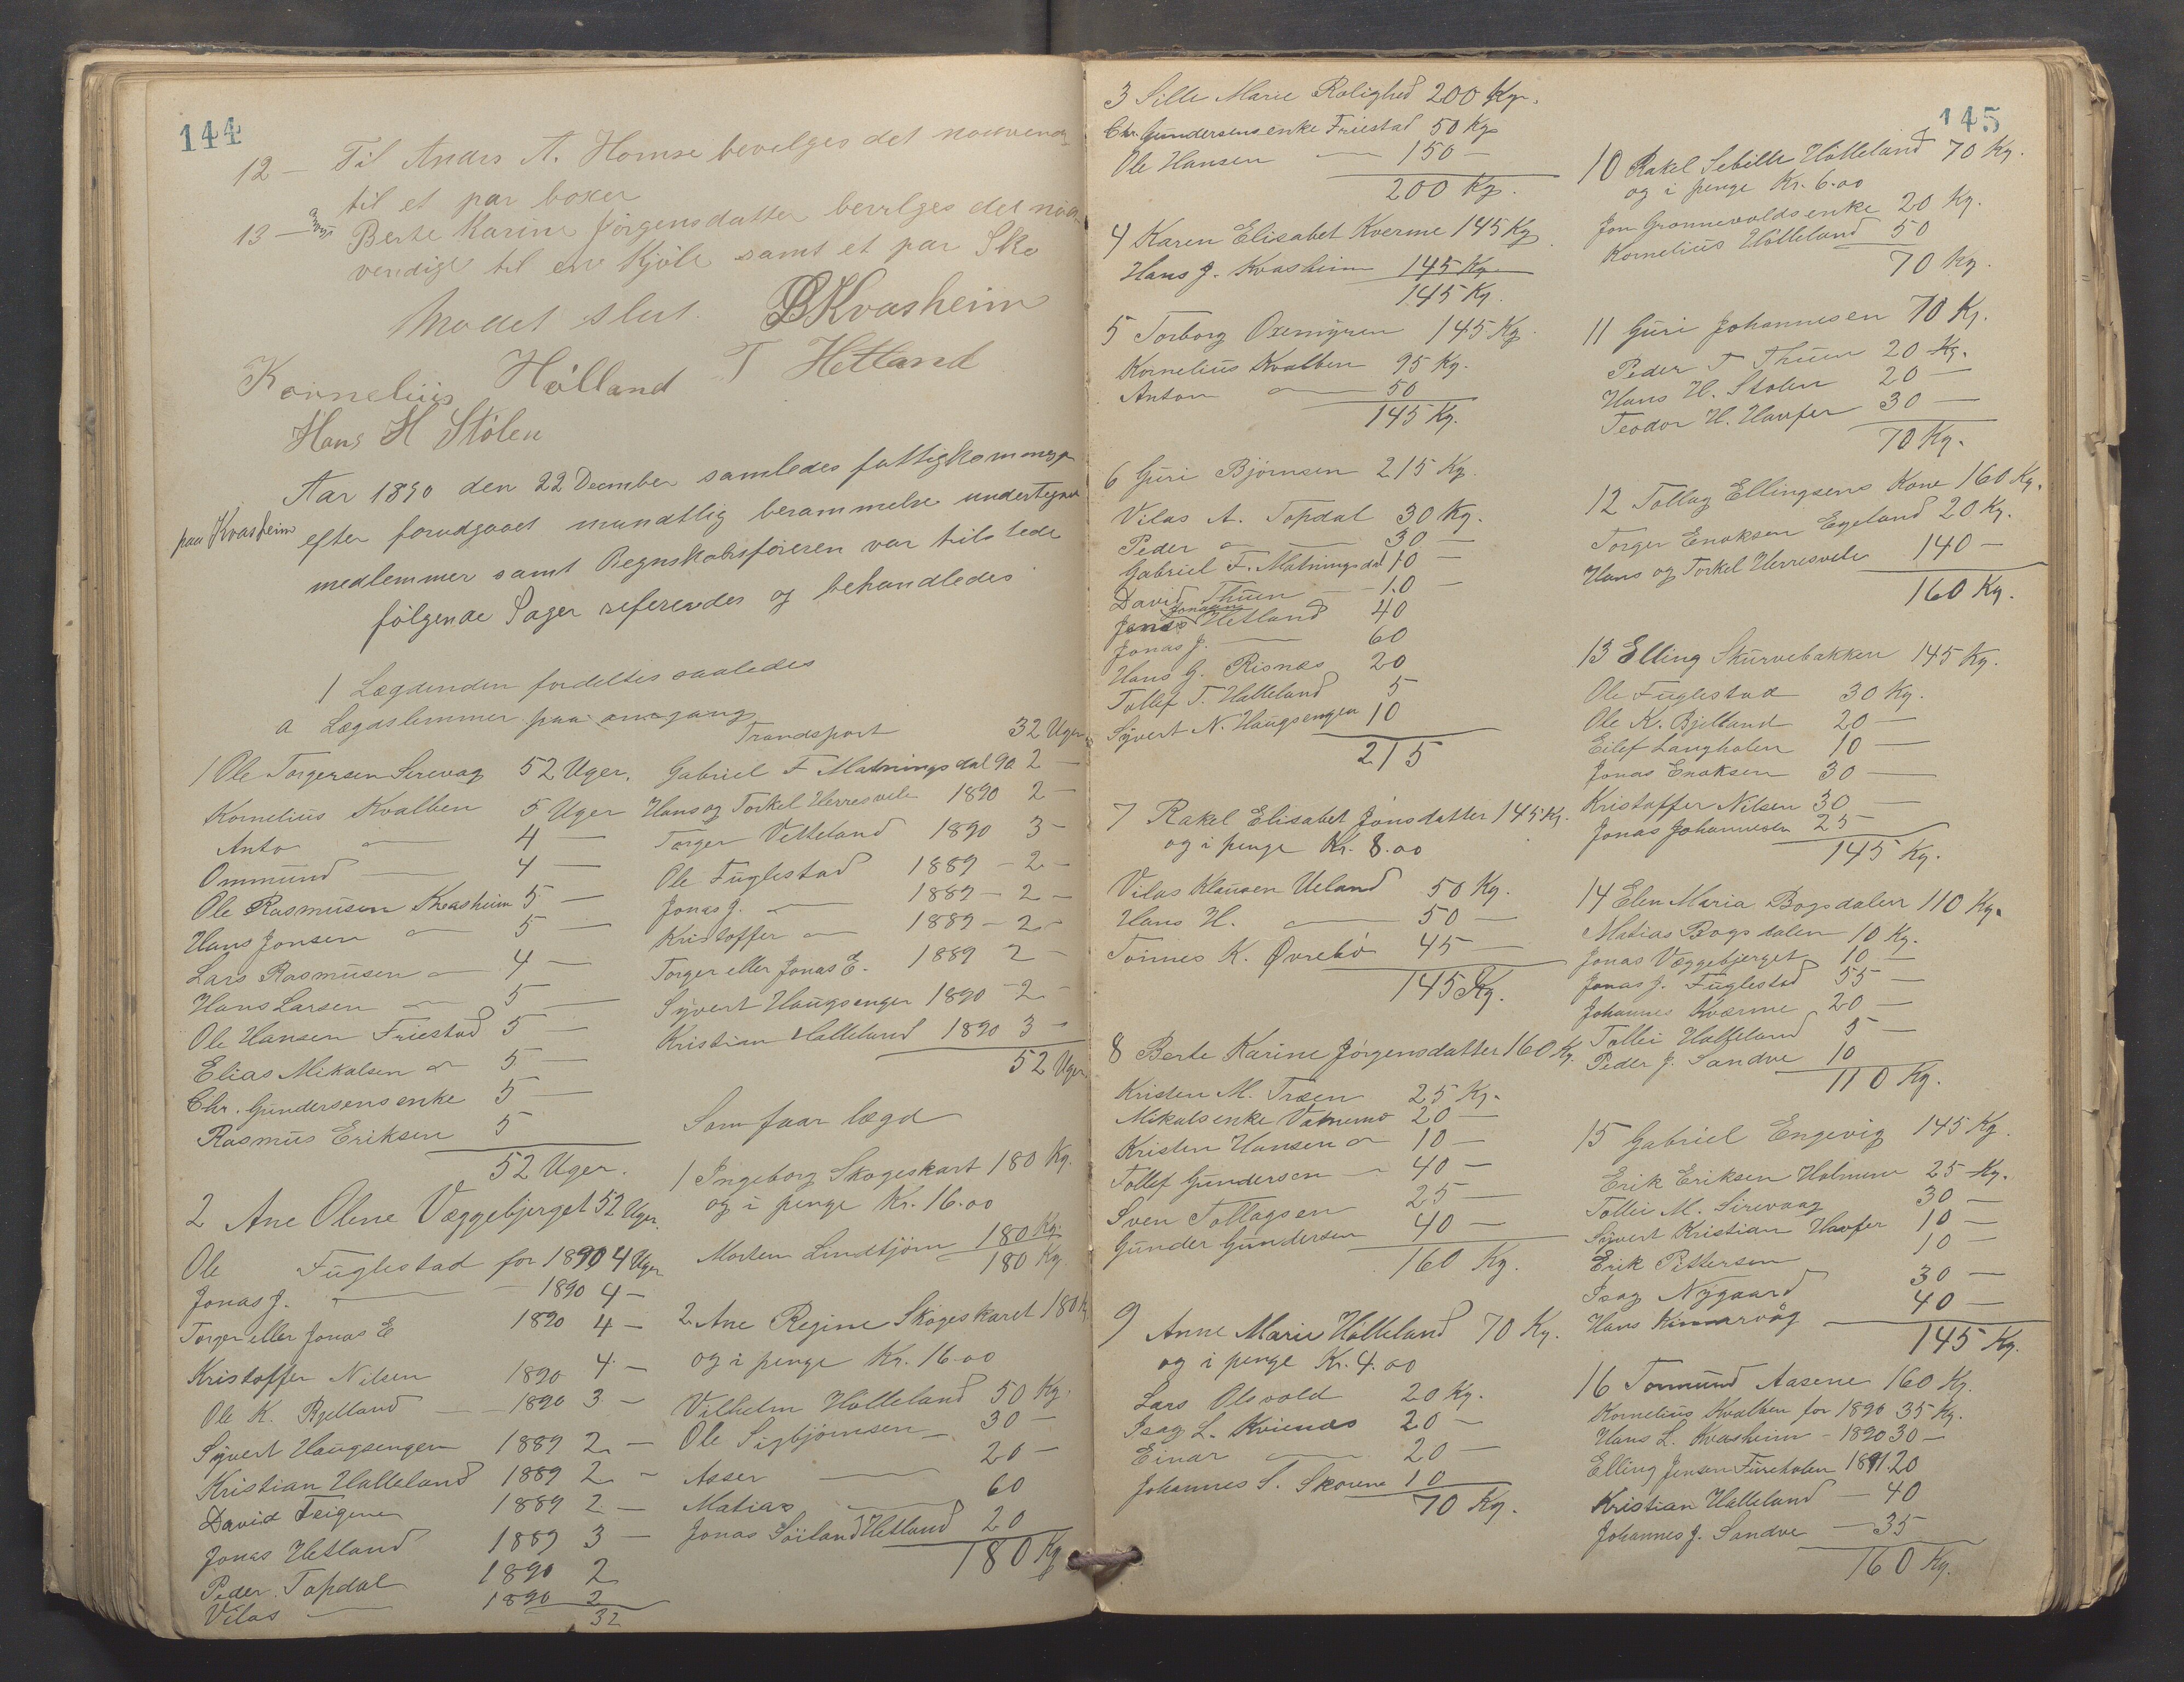 144
12 — Til Anders A. Homse bevelges det nødvendig
til et par boxer
13 — Berte Karine Jörgensdatter bevelges det nöd-
vendige til en Kjöle samt et par Sko
Mödet slut. B Kvasheim
Kornelius Hölland T Hetland
Hans H Stölen
Aar 1890 den 22 December samledes fattigkommisjon
paa Kvasheim efter forudgaaet mundtlig berammelse undertegnede
medlemmer samt Regnskabsföreren var tilstede
fölgende Sager refereredes og behandledes
1 Lægdenden fordeltes saaledes
a Lægdslemmer paa omgang
1 Ole Torgersen Sirevag 52 Uger.
Kornelius Kvalben 5 Uger
Anto — 4 —
Ommund — 4 —
Ole Rasmusen Kvasheim 5 —
Hans Jonsen — 5 —
Lars Rasmusen — 4 —
Hans Larsen — 5 —
Ole Hansen Friestad 5 —
Elias Mikalsen — 5 —
Chr. Gundersens enke 5 —
Rasmus Eriksen 5
52 Uger.
2 Ane Oline Væggebjerget 52 Uger.
Ole Fuglestad for 1890 4 Uger
Jonas J. — — 1890 4 —
Torger eller Jonas E 1890 4 —
Kristoffer Nilsen 1890 4 —
Ole K. Bjelland — 1890 3 —
Syvert Haugsengen 1889 2 —
Kristian Halleland 1889 2 —
David Feigene 1889 2 —
Jonas Hetland 1889 3 —
Peder Topdal 1890 2
Vilas — 1890 2
32
Trandsport 32 Uger
Gabriel F Matningsdal 90 2 —
Hans og Torkel Herresvele 1890 2 —
Torger Vetteland 1890 3 —
Ole Fuglestad 1889 — 2 —
Jonas J. — 1889 — 2 —
Kristoffer — 1889 — 2 —
Torger eller Jonas E. 1889 2 —
Syvert Haugsengen 1890 — 2 —
Kristian Halleland 1890 3 —
52 Uger.
Som faar lægd
1 Ingeborg Skogeskart 180 Kg.
og i penge Kr. 16.00
Morten Lindtjörn 180 Kg.
180 Kg.
2. Ane Regine Skogeskaret 180 K
og i penge Kr. 16.00
Vilhelm Hölleland 50 Kg.
Ole Sigbjörnsen — 30 —
Asser — 20 —
Matias — 60
Jonas Söiland Hetland 20
180 Kg
145
3 Sille Marie Rolighed 200 Kg.
Chr. Gundersens enke Friestad 50 Kg
Ole Hansen — 150 —
200 Kg.
4 Karen Elisabet Kverme 145 Kg.
Hans J. Kvasheim 145 Kg.
145 Kg.
5 Torborg Oxemyren 145 Kg.
Kornelius Kvalben 95 Kg.
Anton — 50
145 Kg.
6 Guri Björnsen 215 Kg.
Vilas A. Topdal 30 Kg.
Peder — — 30 —
Gabriel F. Matningsdal 10 —
David Thuen — 10 —
Jonas Hetland 40
Jonas J. — 60
Hans G. Risnæs 20
Tollef T. Halleland 5
Syvert N. Haugsengen 10
215
7 Rakel Elisabet Jonsdatter 145 Kg.
og i penge Kr. 8.00
Vilas Klausen Ueland 50 Kg.
Hans H. — 50 —
Tönnes K. Øvrebö 45 —
145 Kg.
8 Berte Karine Jörgensdatter 160 Kg.
Kristen M. Træen 25 Kg.
Mikals enke Vatnemo 20 —
Kristen Hansen — 10 —
Tollef Gundersen — 40 —
Sven Tollagsen 25 —
Gunder Gundersen 40 —
160 Kg.
9 Anne Marie Hölleland 70 Kg.
og i penge Kr. 4.00
Lars Olsvold 20 Kg.
Isag L. Kvienæs 20 —
Einar — 20 —
Johannes S. Skorene 10
70 Kg.
10 Rakel Sebille Hölleland 70 Kg.
og i penge Kr. 6.00
Jon Grønnevolds enke 20 Kg.
Kornelius Hölleland 50
70 Kg.
11 Guri Johannesen 70 Kg.
Peder T Thuen 20 Kg.
Hans H. Stolen 20 —
Teodor H. Haufer 30 —
70 Kg.
12 Tollag Ellingsens Kone 160 Kg.
Torger Enoksen Egeland 20 Kg.
Hans og Torkel Herresvele 140 —
160 Kg.
13 Elling Skurvebakken 145 Kg.
Ole Fuglestad 30 Kg.
Ole K. Bjelland 20 —
Eilef Langholen 10 —
Jonas Enoksen 30 —
Kristoffer Nilsen 30 —
Jonas Johannesen 25 —
145 Kg.
14 Elen Maria Bogsdalen 110 Kg.
Matias Bogsdalen 10 Kg.
Jonas Væggebjerget 10 —
Jonas J. Fuglestad 55 —
Johannes Kværme 20 —
Tollei Halleland 5 —
Peder J. Sandve 10
110 Kg.
15 Gabriel Engevig 145 Kg.
Erik Eriksen Holmene 25 Kg.
Tollei M. Sirevaag 30 —
Syvert Kristian Haufer 10 —
Erik Pettersen 10 —
Isag Nygaard 30 —
Hans Kinnarvåg 40 —
145 Kg.
16 Tormund Aasene 160 Kg.
Kornelius Kvalben for 1890 35 Kg.
Hans L. Kvasheim — 1890 30 —
Elling Jensen Fureholen 1891 20
Kristian Halleland — 40
Johannes J. Sandve — 35
160 Kg.